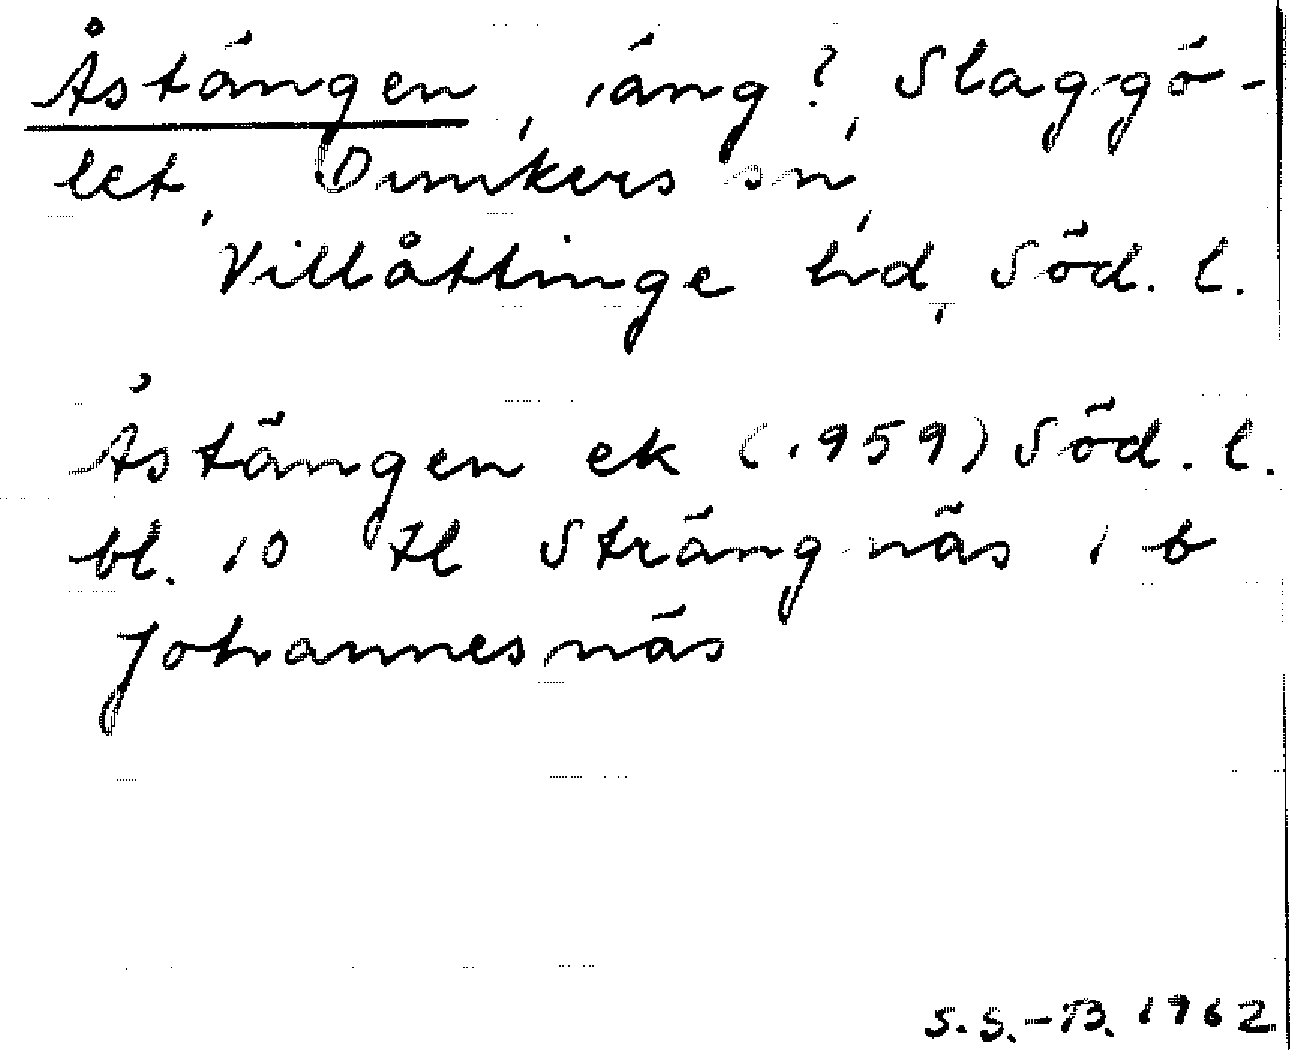 Åstängen, äng? Slaggö-
let, Dunkers sn,
Villåttinge hd, Söd. l.
Åstängen ek (1959) Söd. l.
bl. 10 tl Strängnäs 1 b
Johannesnäs
S.S.-B. 1962